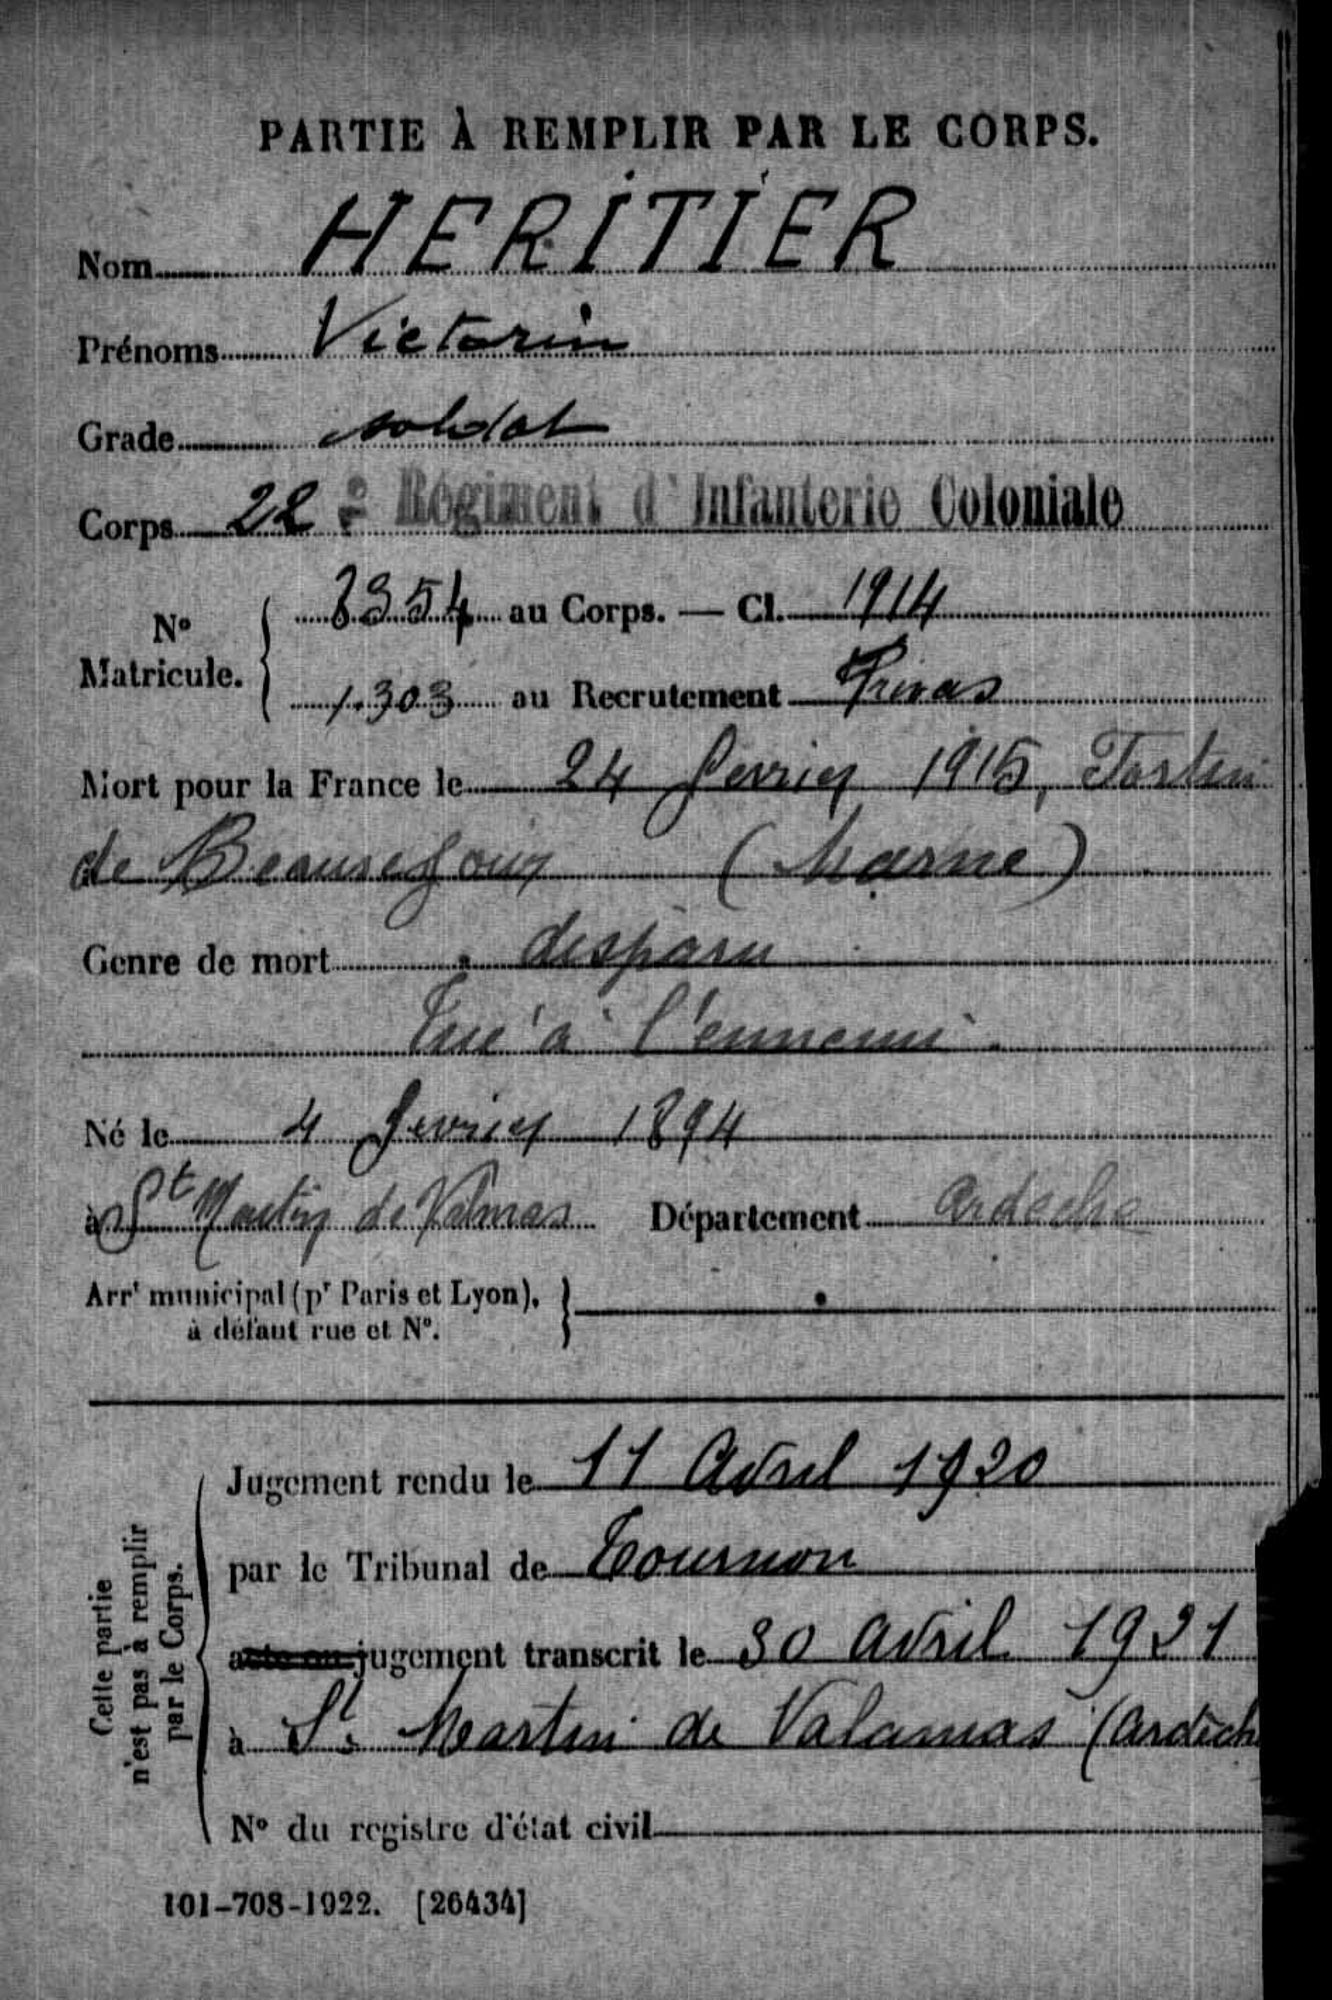 PARTIE À REMPLIR PAR LE CORPS.
Nom HERITIER
Prénoms Victorin
Grade soldat
Corps 22e Régiment d'Infanterie Coloniale
No Matricule. 8354 au Corps. — Cl. 1914
1.303 au Recrutement Privas
Mort pour la France le 24 fevrier 1915, Fortin
de Beauséjour (Marne)
Genre de mort disparu
Tué à l'ennemi.
Né le 4 fevrier 1894
à St Martin de Valmas Département Ardeche
Arrt municipal (pr Paris et Lyon),
à défaut rue et No.
Cette partie
n'est pas à remplir
par le Corps.
Jugement rendu le 11 Avril 1920
par le Tribunal de Tournon
acte ou jugement transcrit le 30 avril 1921
à St. Martin de Valamas (Ardèch
No du registre d'état civil
101-708-1922. [26434]